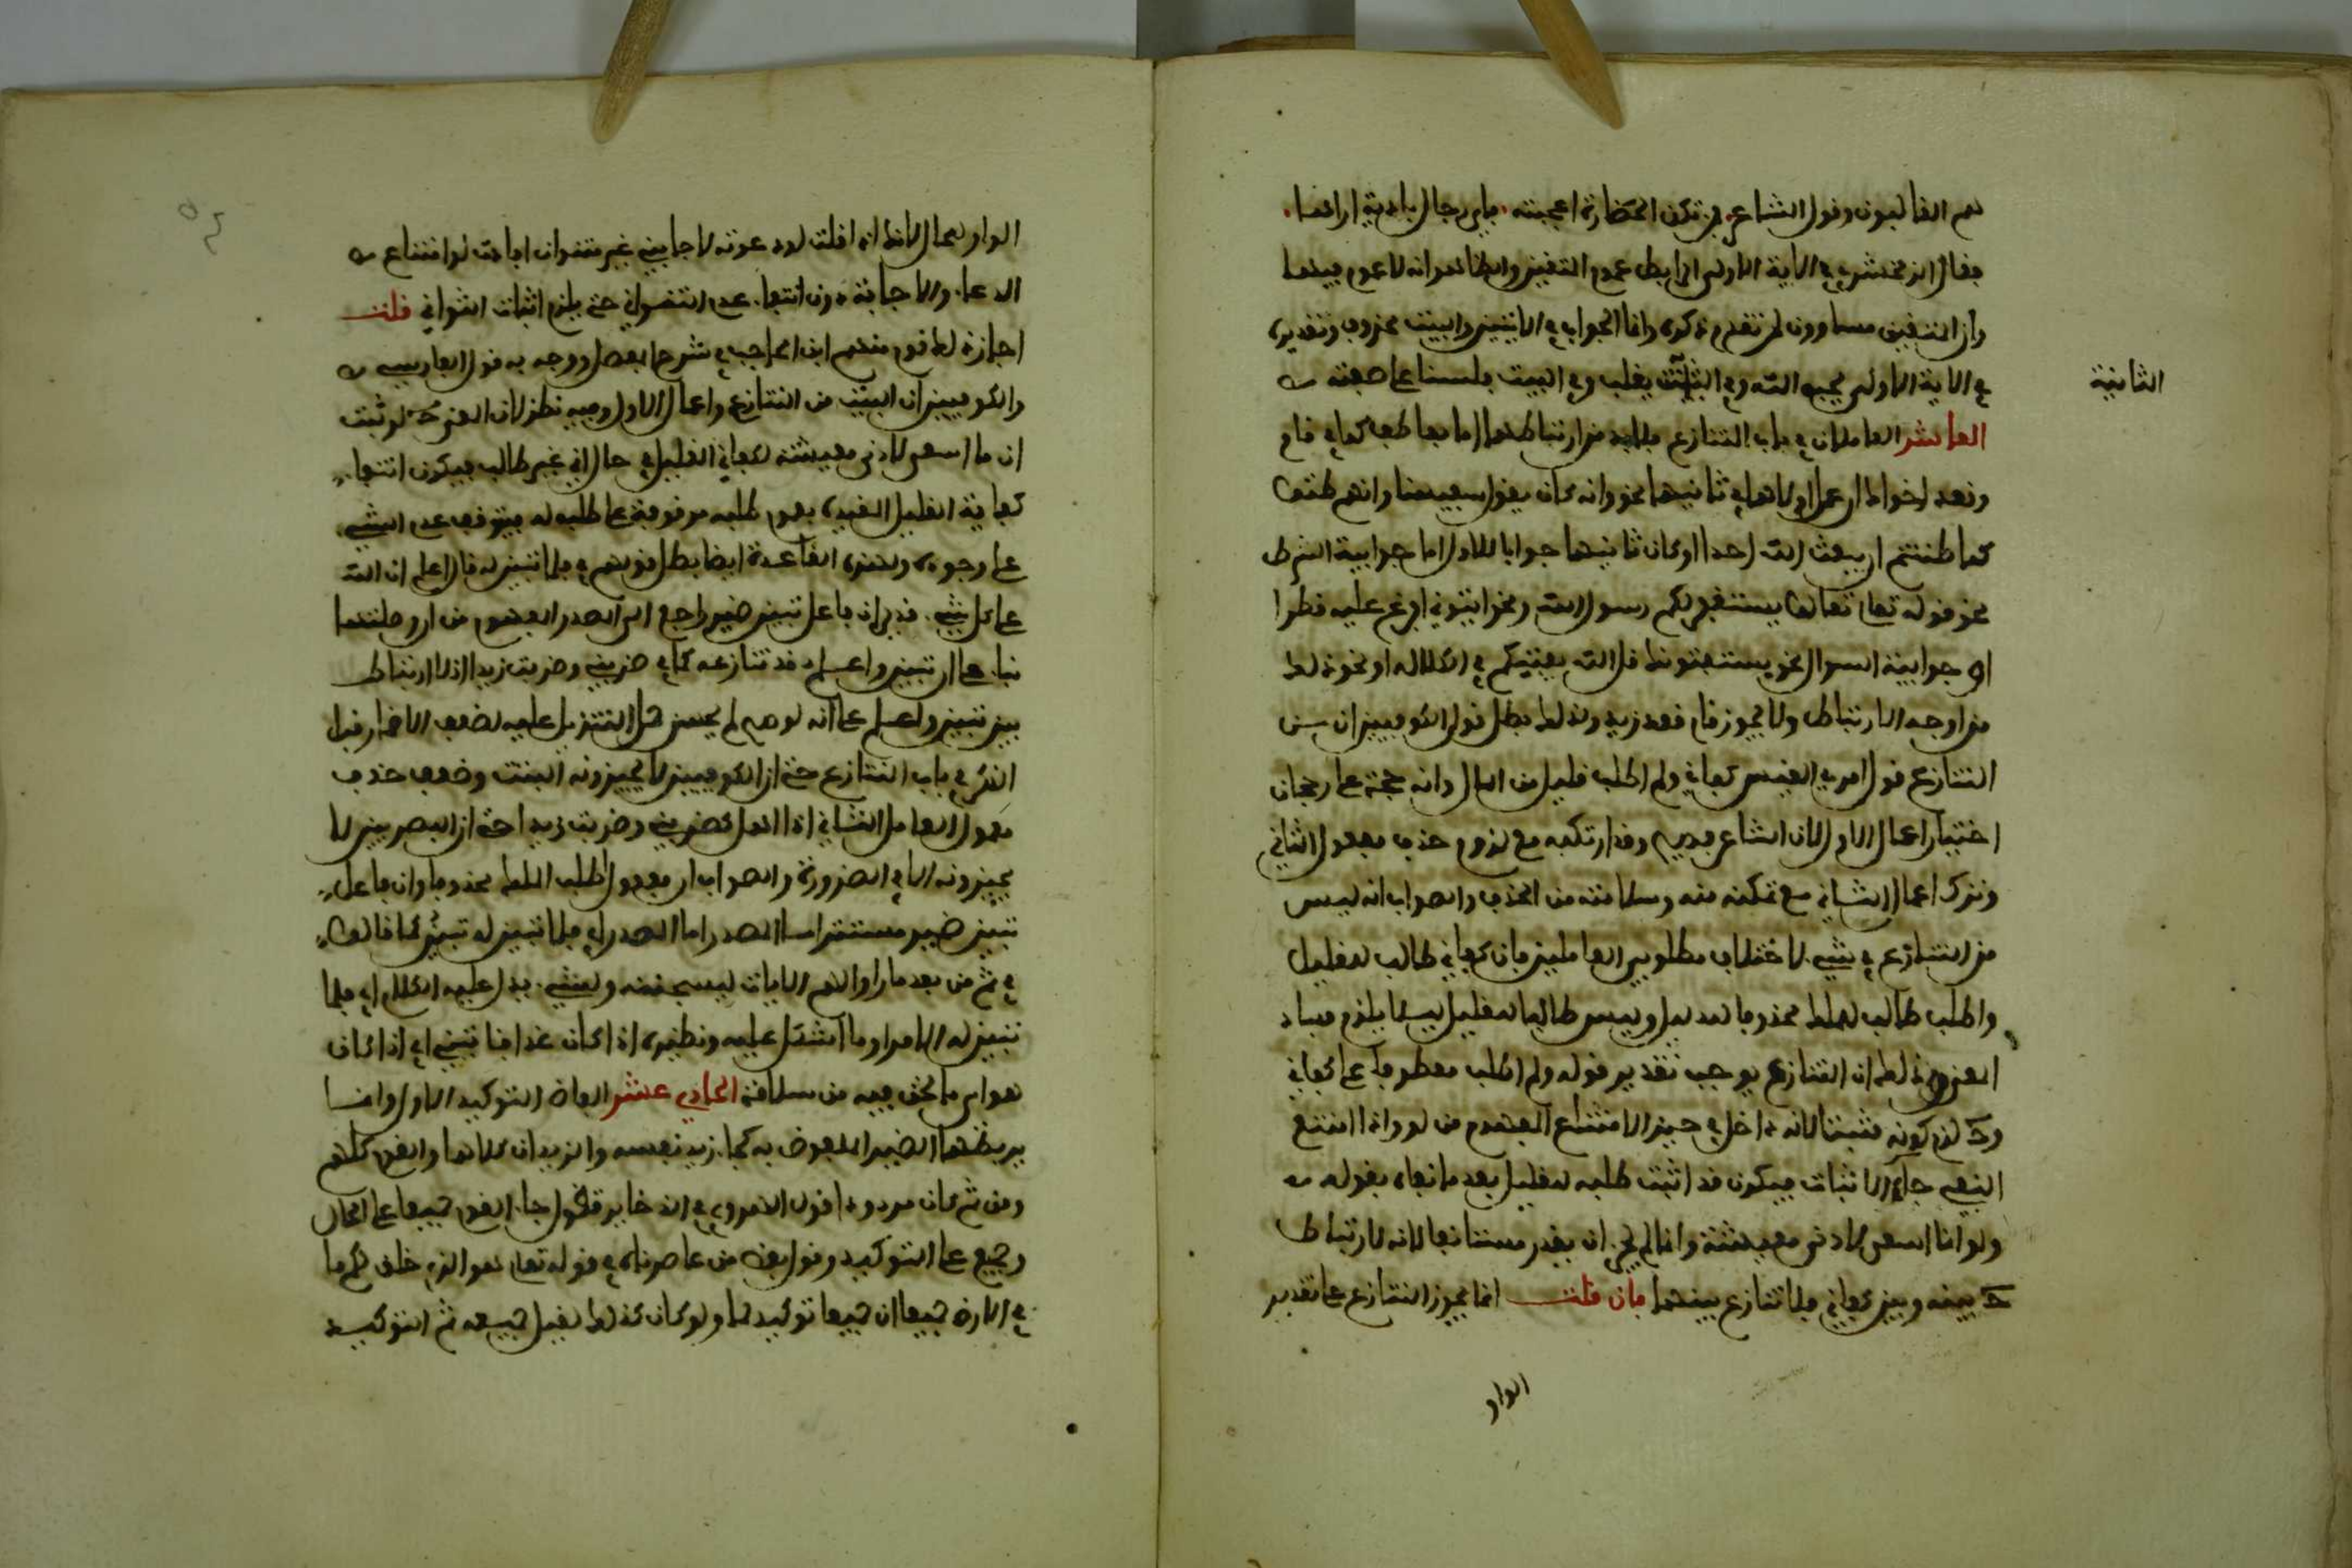 هم الغالبون وقول الشاعر فمن تكن الحضارة اعجبته فاي رجال بادية ترانا
فقال الزمخشري في الاية الاولى الرابط عموم المتقين والظاهر انه لا عموم فيها
وان المتقين مساوون لمن تقدم ذكره وانما الجواب في الايتين والبيت محذوف وتقديره
في الاية الاولى يحبه الله وفي الثانية يغلب وفي البيت فلسنا على صفته
الثانية
العاشر العاملان في باب التنازع فلا بد من ارتباطهما اما بعاطف كما في قام
وقعد اخواك او عمل اولاهما في ثانيهما نحو وانه كان يقول سفيهنا وانهم ظنوا
كما ظننتم ان لن يبعث الله احدا او كان ثانيهما جوابا للاول اما جوابية الشرط
نحو قوله تعالى تعالوا يستغفر لكم رسول الله ونحو اتوني افرغ عليه قطرا
او جوابية السوال نحو يستفتونك قل الله يفتيكم في الكلالة او نحو ذلك
من اوجه الارتباط ولا يجوز قام قعد زيد ولذلك بطل قول الكوفيين ان من
التنازع قول امرئ القيس كفاني ولم اطلب قليل من المال وانه حجة على رجحان
اختيار اعمال الاول لان الشاعر فصيح وقد ارتكبه مع لزوم حذف مفعول الثاني
وترك اعمال الثاني مع تمكنه منه وسلامته من الحذف والصواب انه ليس
من التنازع في شيء لاختلاف مطلوبي العاملين فان كفاني طالب للقليل
واطلب طالب للملك محذوفا للدليل وليس طالبا للقليل ليلا يلزم فساد
المعنى وذلك ان التنازع يوجب تقدير قوله ولم اطلب معطوفا على كفاني
وح يلزم كونه مثبتا لانه داخل في حيز الامتناع المفهوم من لو واذا امتنع
النفي جاء الاثبات فيكون قد اثبت طلبه للقليل بعد ما نفاه بقوله
ولو انما اسعى لادنى معيشة وانما لم يجز ان يقدر مستانفا لانه لا ارتباط
ح بينه وبين كفاني فلا تنازع بينهما فان قلت انما يجوز التنازع على تقدير
الواو
الواو للحال لانك اذا قلت لو دعوته لاجابني غير متوان افادت لو امتناع
الدعاء والاجابة دون انتفاء عدم التواني حتى يلزم اثبات التواني قلت
اجاز ذلك قوم منهم ابن الحاجب في شرح المفصل ووجه به قول الفارسي
والكوفيين ان البيت من التنازع واعمال الاول وفيه نظر لان المعنى ح لو ثبت
ان ما اسعى لادنى معيشة لكفاني القليل في حال اني غير طالب فيكون انتفاء
كفاية القليل المقيدة بعدم طلبه موقوفة على طلبه له فيتوقف عدم الشيء
على وجوده ولهذه القاعدة ايضا بطل قولهم في فلما تبين له قال اعلم ان الله
على كل شيء قدير ان فاعل تبين ضمير راجع الى المصدر المفهوم من ان وصلتها
بناء على ان تبين واعلم قد تنازعه كما في ضربني وضربت زيدا اذ لا ارتباط
بين تبين واعلم على انه لو صح لم يحسن حمل التنزيل عليه لضعف الاضمار قبل
الذكر في باب التنازع حتى ان الكوفيين لا يجيزونه البتة وضعف حذف
مفعول العامل الثاني اذا اهمل كضربني وضربت زيد احتى ان البصريين لا
يجيزونه الا في الضرورة والصواب ان مفعول اطلب الملك محذوفا وان فاعل
تبين ضمير مستتر اما للمصدر اي فلما تبين له تبين كما قالوا
في ثم من بعد ما راوا الايات ليسجننه ولشيء يدل عليه الكلام اي فلما
تبين له الامر او ما اشكل عليه ونظيره اذا كان غدا فاتني اي اذا كان
هو اي ما نحن فيه من سلامة الحادي عشر الفاظ التوكيد الاول وانما
يربطها الضمير الملفوظ به كجاء زيد نفسه والزيدان كلاهما والقوم كلهم
ومن ثم كان مردودا قول الهروي في الذخاير تقول جاء القوم جميعا على الحال
وجميع على التوكيد وقول بعض من عاصرناه في قوله تعالى هو الذي خلق لكم ما
في الارض جميعا ان جميعا توكيد لما ولو كان كذلك لقيل جميعه ثم التوكيد